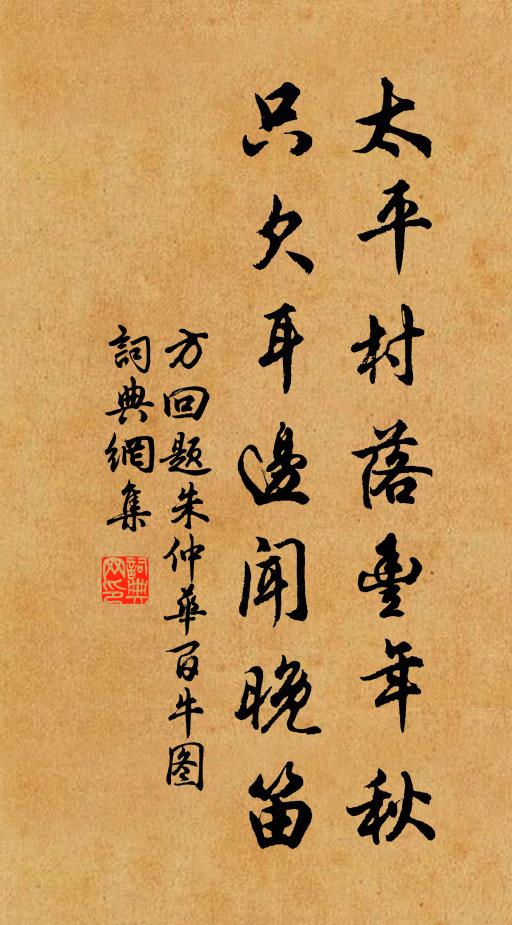 太平村落豊年秋
只欠耳邊聞晚笛
方回题朱仲華百牛图
詞典網集
詞典网印